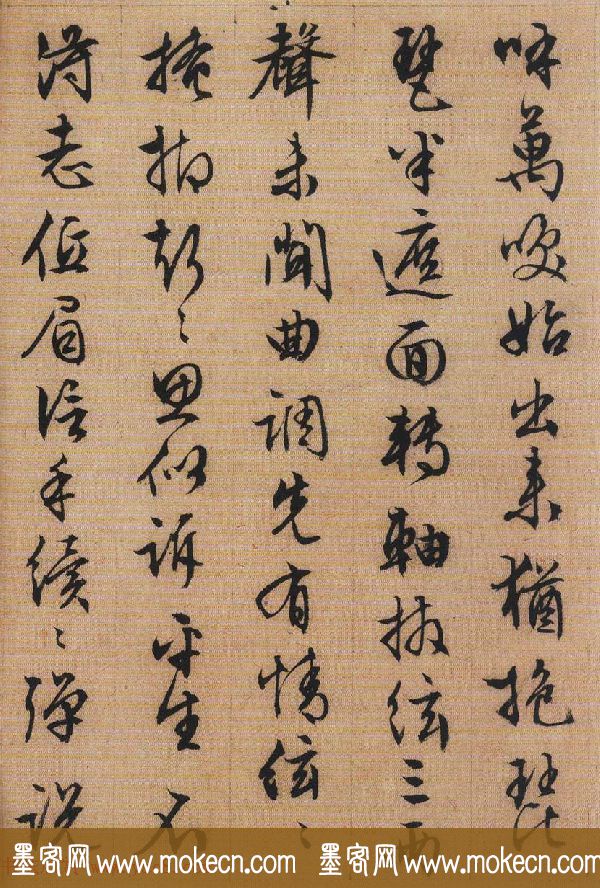 呼萬喚始出來猶抱琵
琶半遮面轉軸撥絃三兩
聲未聞曲調先有情絃〻
掩抑聲〻思似訴平生不
得志低眉信手續〻彈說
墨客网 www.mokecn.com 墨客网 www.mokecn.com